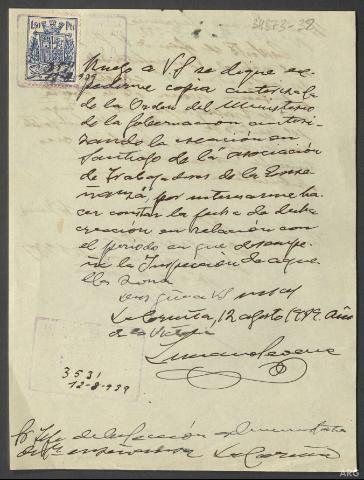 34573-38
1,50 Pts
Ruego a V.S. se digne ex-
pedirme copia autorizada
de la Orden del Ministerio
de la Gobernación autori-
zando la creación en
Santiago de la asociación
de Trabajadores de la Ense-
ñanza, por interesarme ha-
cer constar la fecha de dicha
creación en relación con
el periodo en que desempe-
ñé la Inspección de aque-
lla zona
Dios guíe a V.S. 
La Coruña, 12 agosto 1939. Año
de la Victoria
3531
12-8-939
Sr. Jefe de la Sección administrativa
de 1ª enseñanza La Coruña
ARG